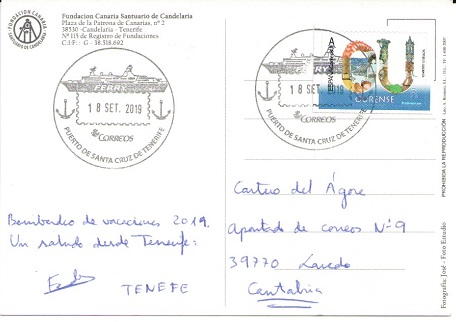 FUNDACION CANARIA
SANTUARIO DE CANDELARIA
Fundacion Canaria Santuario de Candelaria
Plaza de la Patrona de Canarias, nº 2
38530 -Candelaria - Tenerife
Nº 115 de Registro de Fundaciones
C.I.F: : G - 38.518.692
FERRY
18 SET. 2019
CORREOS
PUERTO DE SANTA CRUZ DE TENERIFE
18 SET. 2019
CORREOS
PUERTO DE SANTA CRUZ DE TENERIFE
OU
OURENSE
Bombardeo de vacaciones 2019.
Un saludo desde Tenerife:
TENEFE
Cartero del Ágore
Apartado de correos Nº 9
39770 Laredo
Cantabria
PROHIBIDA LA REPRODUCCIÓN
Fotografía, José - Foto Estudio